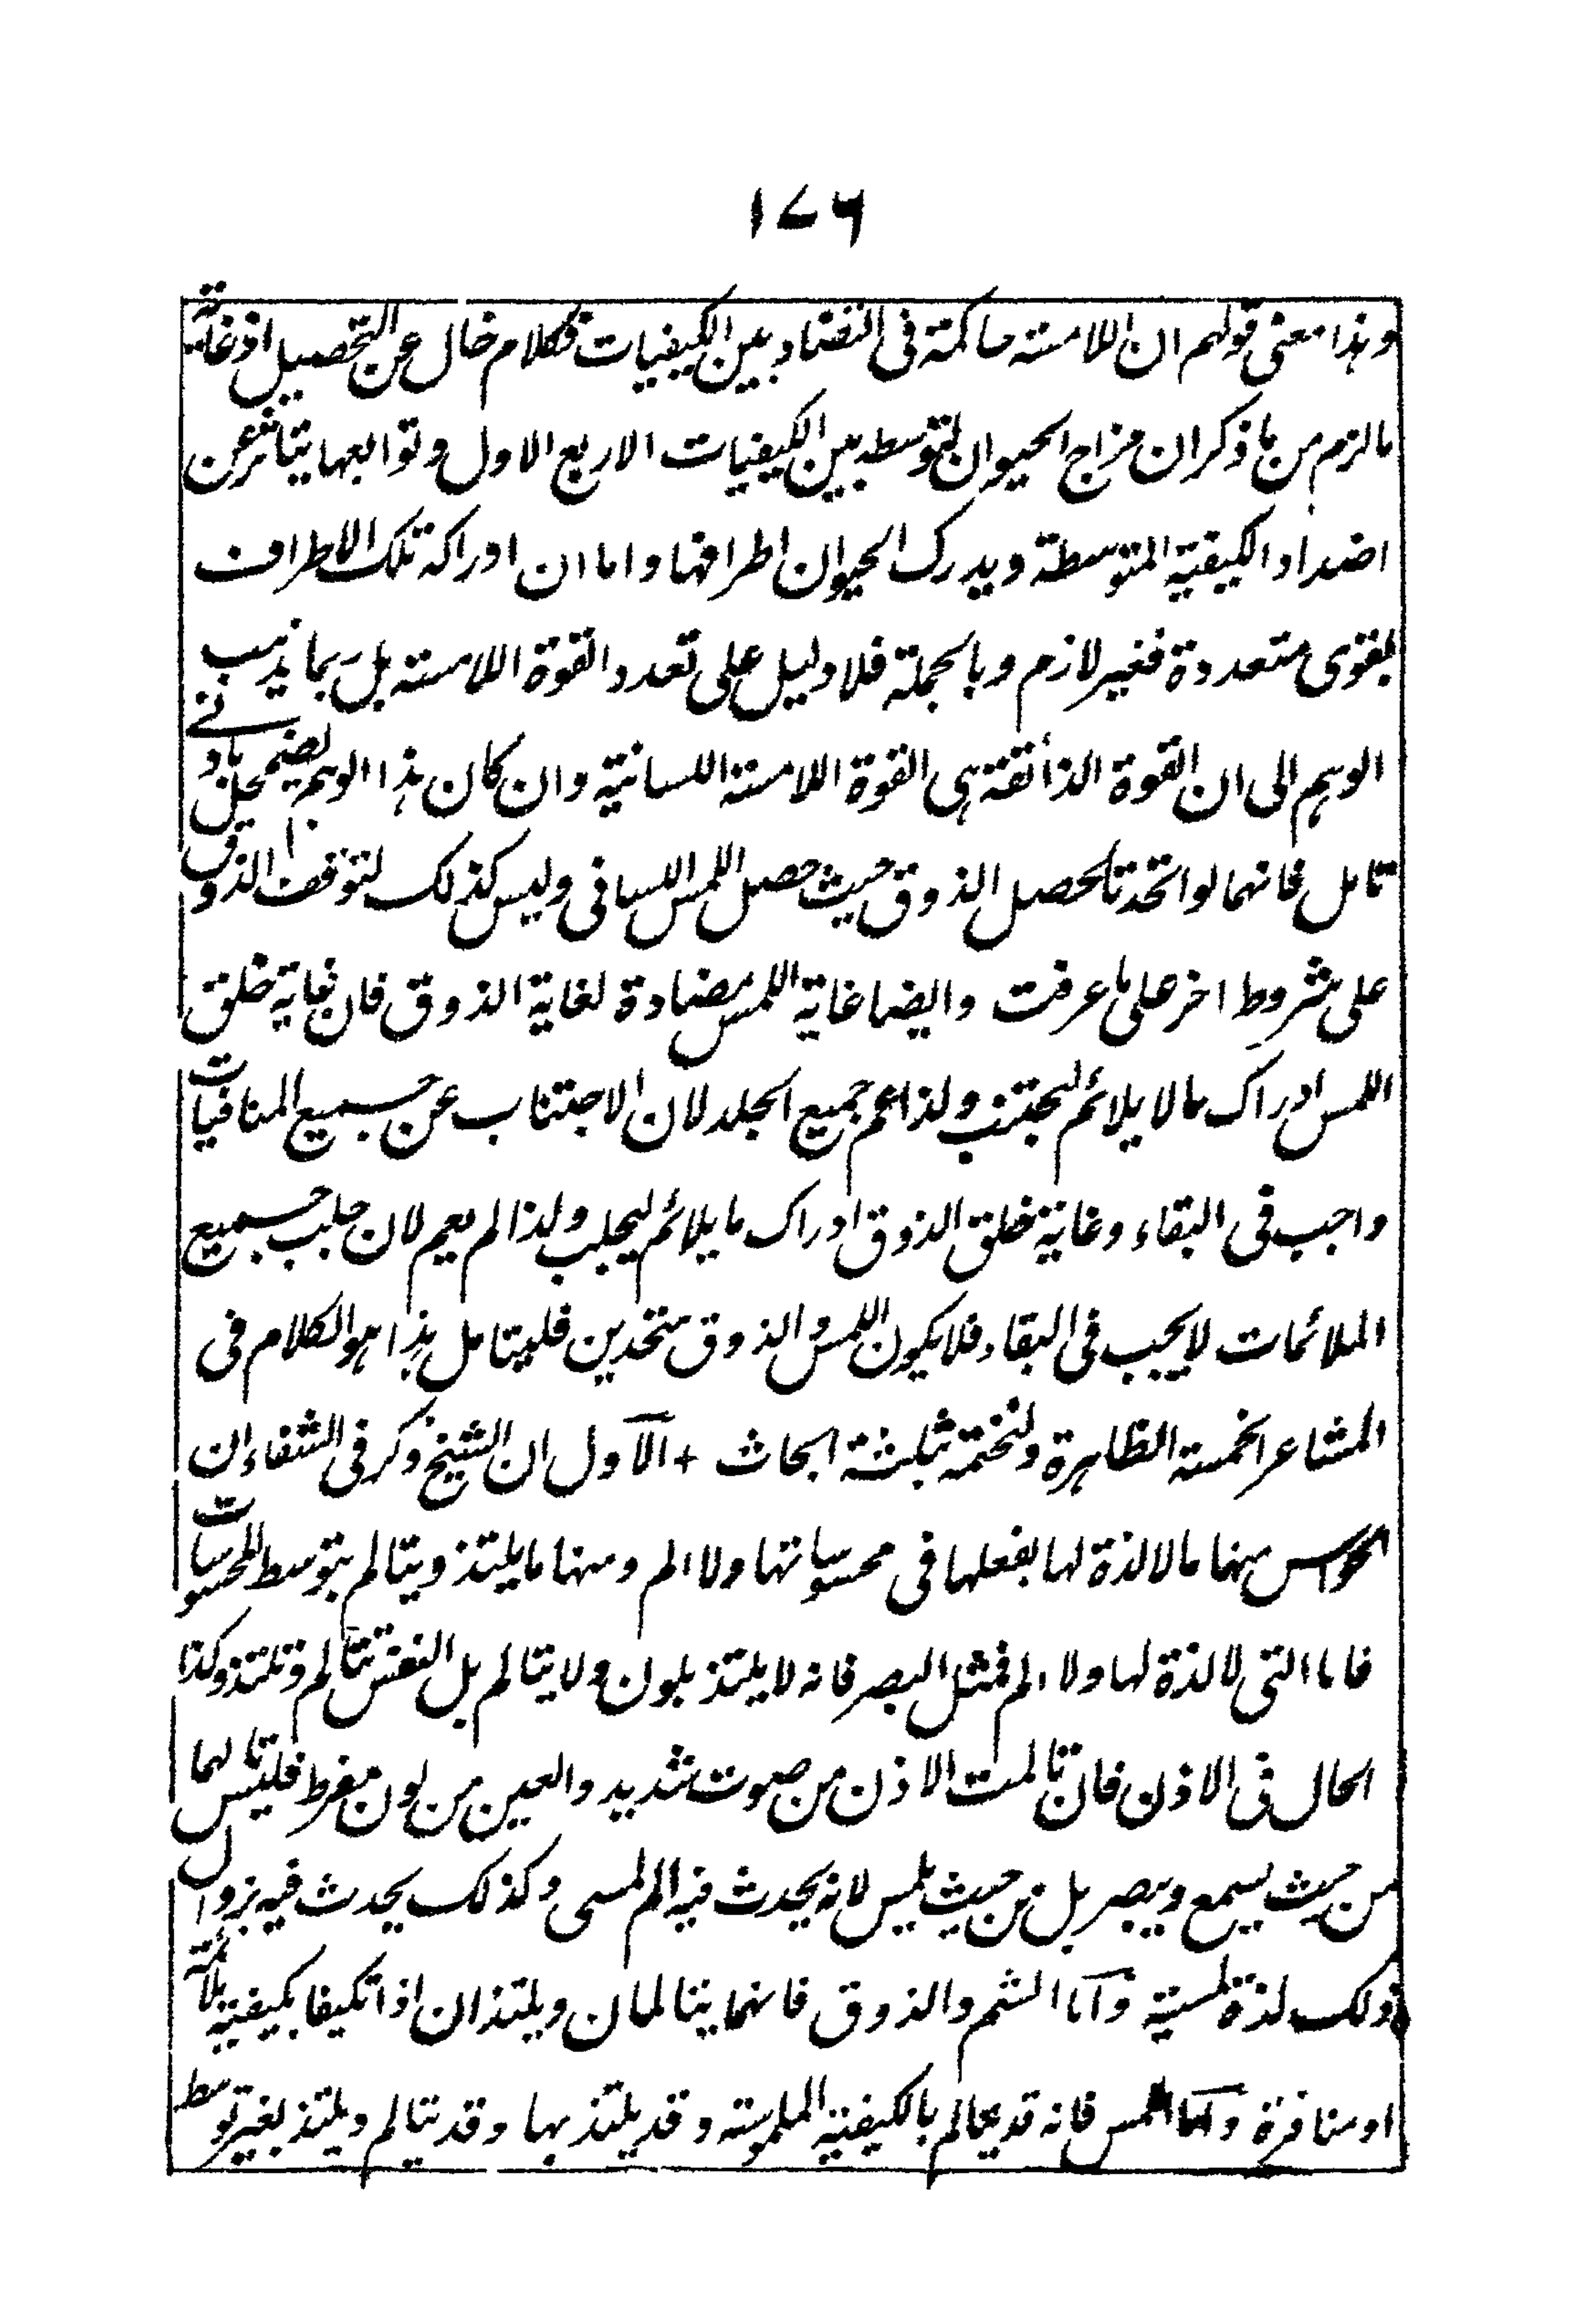 ١٧٦
وهذا معنى قولهم ان اللامسة حاكمة فى التضاد بين الكيفيات فكلام خال عن التحصيل اذ غاية
ما لزم من ما ذكر ان مزاج الحيوان لتوسطه بين الكيفيات الاربع الاول وتوابعها يتاثر عن
اضداد الكيفية المتوسطة ويدرك الحيوان اطرافها واما ان ادراكه تلك الاطراف
بقوى متعددة فغير لازم وبالجملة فلا دليل على تعدد القوة اللامسة بل ربما يذهب
الوهم الى ان القوة الذائقة هى القوة اللامسة اللسانية وان كان هذا الوهم يضمحل بادنے
تامل فانهما لو اتحدتا لحصل الذوق حيث حصل اللمس اللسانى وليس كذلك لتوقف الذوق
على شروط اخر على ما عرفت وايضا غاية اللمس مضادة لغاية الذوق فان غاية خلق
اللمس ادراك ما لا يلائم ليجتنب ولذا عم جميع الجلد لان الاجتناب عن جميع المنافيات
واجب فى البقاء وغاية خلق الذوق ادراك ما يلائم ليجلب ولذا لم يعم لان جلب جميع
الملائمات لا يجب فى البقاء فلا يكون اللمس والذوق متحدين فليتامل هذا هو الكلام فى
المشاعر الخمسة الظاهرة ولنختمه بثلثة ابحاث + الاول ان الشيخ ذكر فى الشفاء ان
الحواس منها ما لا لذة لها بفعلها فى محسوساتها ولا الم ومنها ما يلتذ ويتالم بتوسط المحسوسات
فاما التى لا لذة لها ولا الم فمثل البصر فانه لا يلتذ بلون ولا يتالم بل النفس تتالم وتلتذ وكذا
الحال فى الاذن فان تالمت الاذن من صوت شديد والعين من لون مفرط فليس تالمها
من حيث يسمع ويبصر بل من حيث يلمس لانه يحدث فيه الم لمسى وكذلك يحدث فيه بزوال
ذلك لذة لمسية واما الشم والذوق فانهما يتالمان ويلتذان اذا تكيفا بكيفية ملائمة
او منافرة واما اللمس فانه قد يتالم بالكيفية الملموسة وقد يلتذ بها وقد يتالم ويلتذ بغير توسط